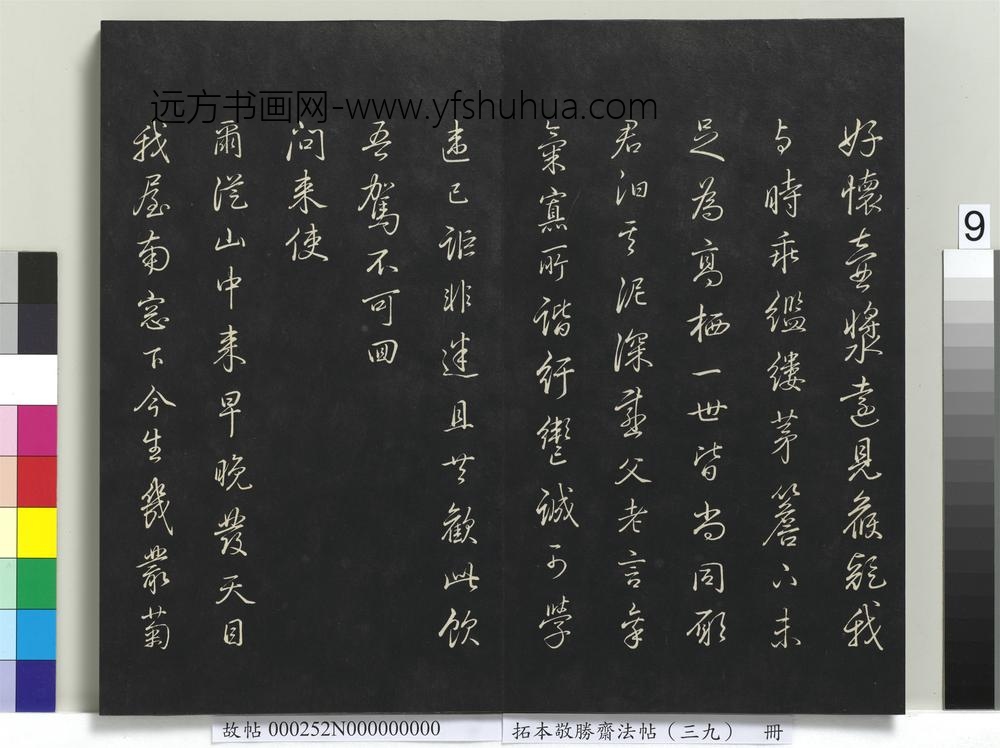 远方书画网-www.yfshuhua.com
好懷壺漿遠見候疑我
与時乖繿縷茅簷下未
足為高栖一世皆尚同願
君汩其泥深感父老言稟
氣寡所諧紆轡誠可學
違己詎非迷且共歡此飲
吾駕不可回
問来使
爾從山中来早晚發天目
我屋南窓下今生幾叢菊
9
故帖 000252N000000000
拓本敬勝齋法帖（三九） 冊